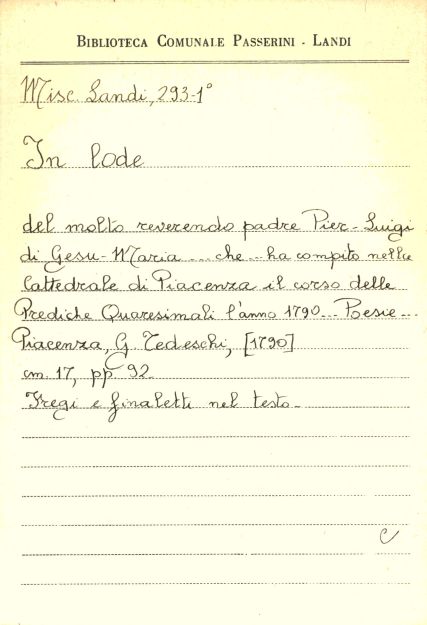 BIBLIOTECA COMUNALE PASSERINI - LANDI
Misc. Landi, 293-1°
In lode
del molto reverendo padre Pier-Luigi
di Gesu-Maria ... che ... ha compito nella
Cattedrale di Piacenza il corso delle
Prediche Quaresimali l'anno 1790... Poesie...
Piacenza, G. Tedeschi, [1790]
cm. 17, pp. 92
Fregi e finaletti nel testo.
C